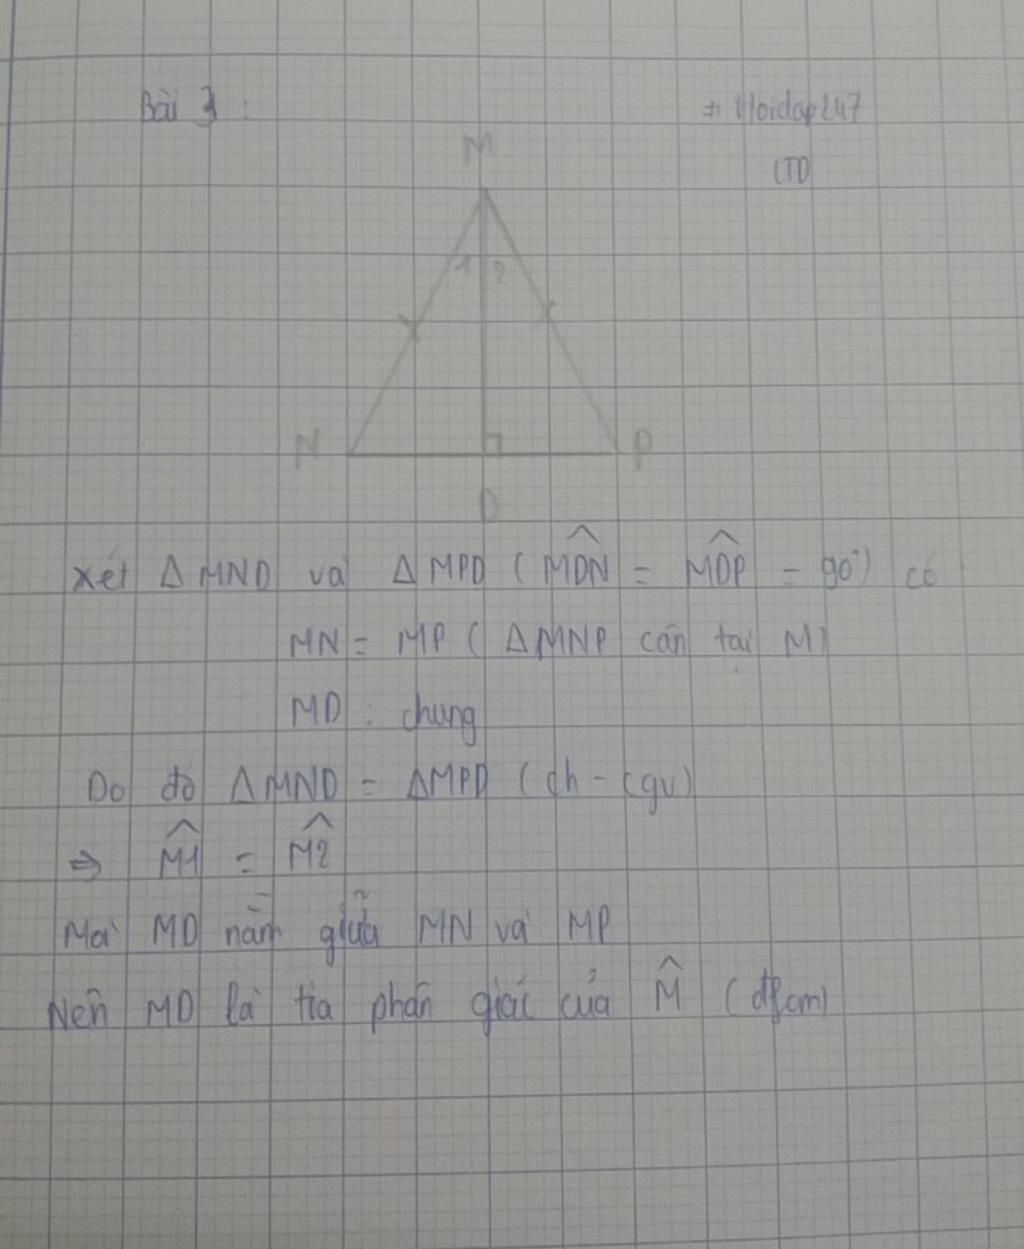 Bài 3 :
# Hoidap247
CTD
M
1 2
N P
D
Xét Δ MND và Δ MPD ( MDN = MDP = 90°) có
MN = MP ( ΔMNP cân tại M)
MD : chung
Do đó ΔMND = ΔMPD ( ch - cgv)
⇒ M1 = M2
Mà MD nằm giữa MN và MP
Nên MD là tia phân giác của M̂ ( đpcm)